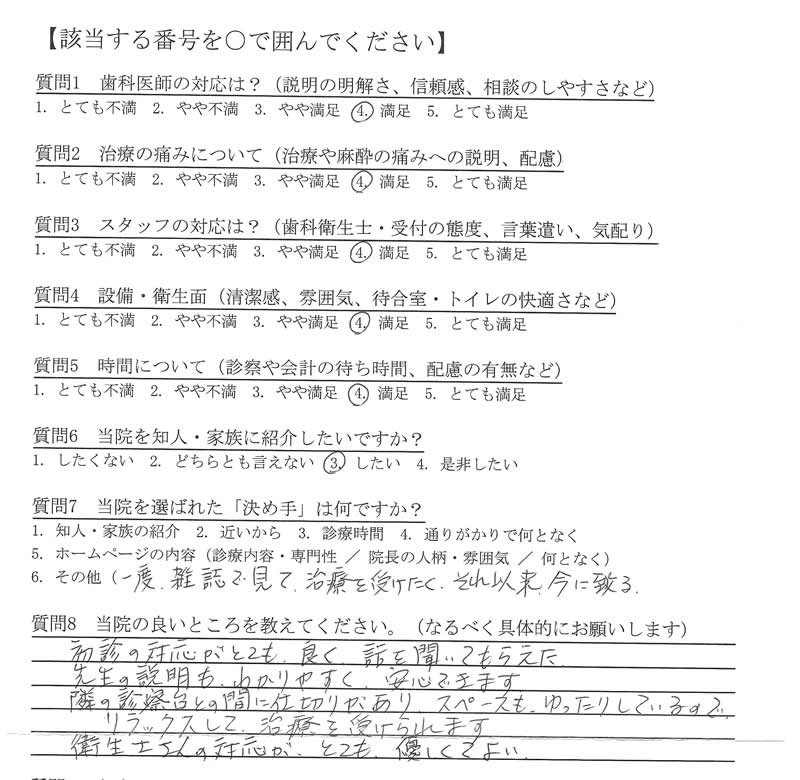 【該当する番号を○で囲んでください】
質問1 歯科医師の対応は？（説明の明解さ、信頼感、相談のしやすさなど）
1. とても不満 2. やや不満 3. やや満足 4. 満足 5. とても満足
質問2 治療の痛みについて（治療や麻酔の痛みへの説明、配慮）
1. とても不満 2. やや不満 3. やや満足 4. 満足 5. とても満足
質問3 スタッフの対応は？（歯科衛生士・受付の態度、言葉遣い、気配り）
1. とても不満 2. やや不満 3. やや満足 4. 満足 5. とても満足
質問4 設備・衛生面（清潔感、雰囲気、待合室・トイレの快適さなど）
1. とても不満 2. やや不満 3. やや満足 4. 満足 5. とても満足
質問5 時間について（診察や会計の待ち時間、配慮の有無など）
1. とても不満 2. やや不満 3. やや満足 4. 満足 5. とても満足
質問6 当院を知人・家族に紹介したいですか？
1. したくない 2. どちらとも言えない 3. したい 4. 是非したい
質問7 当院を選ばれた「決め手」は何ですか？
1. 知人・家族の紹介 2. 近いから 3. 診療時間 4. 通りがかりで何となく
5. ホームページの内容（診療内容・専門性 ／ 院長の人柄・雰囲気 ／ 何となく）
6. その他（一度、雑誌で見て、治療を受けたく、それ以来、今に致る、
質問8 当院の良いところを教えてください。（なるべく具体的にお願いします）
初診の対応がとても、良く、話を聞いてもらえた、
先生の説明も、わかりやすく、安心できます
隣の診察台との間に仕切りがあり、スペースも、ゆったりしているので、
リラックスして、治療を受けられます
衛生士さんの対応が、とても、優しくてよい、